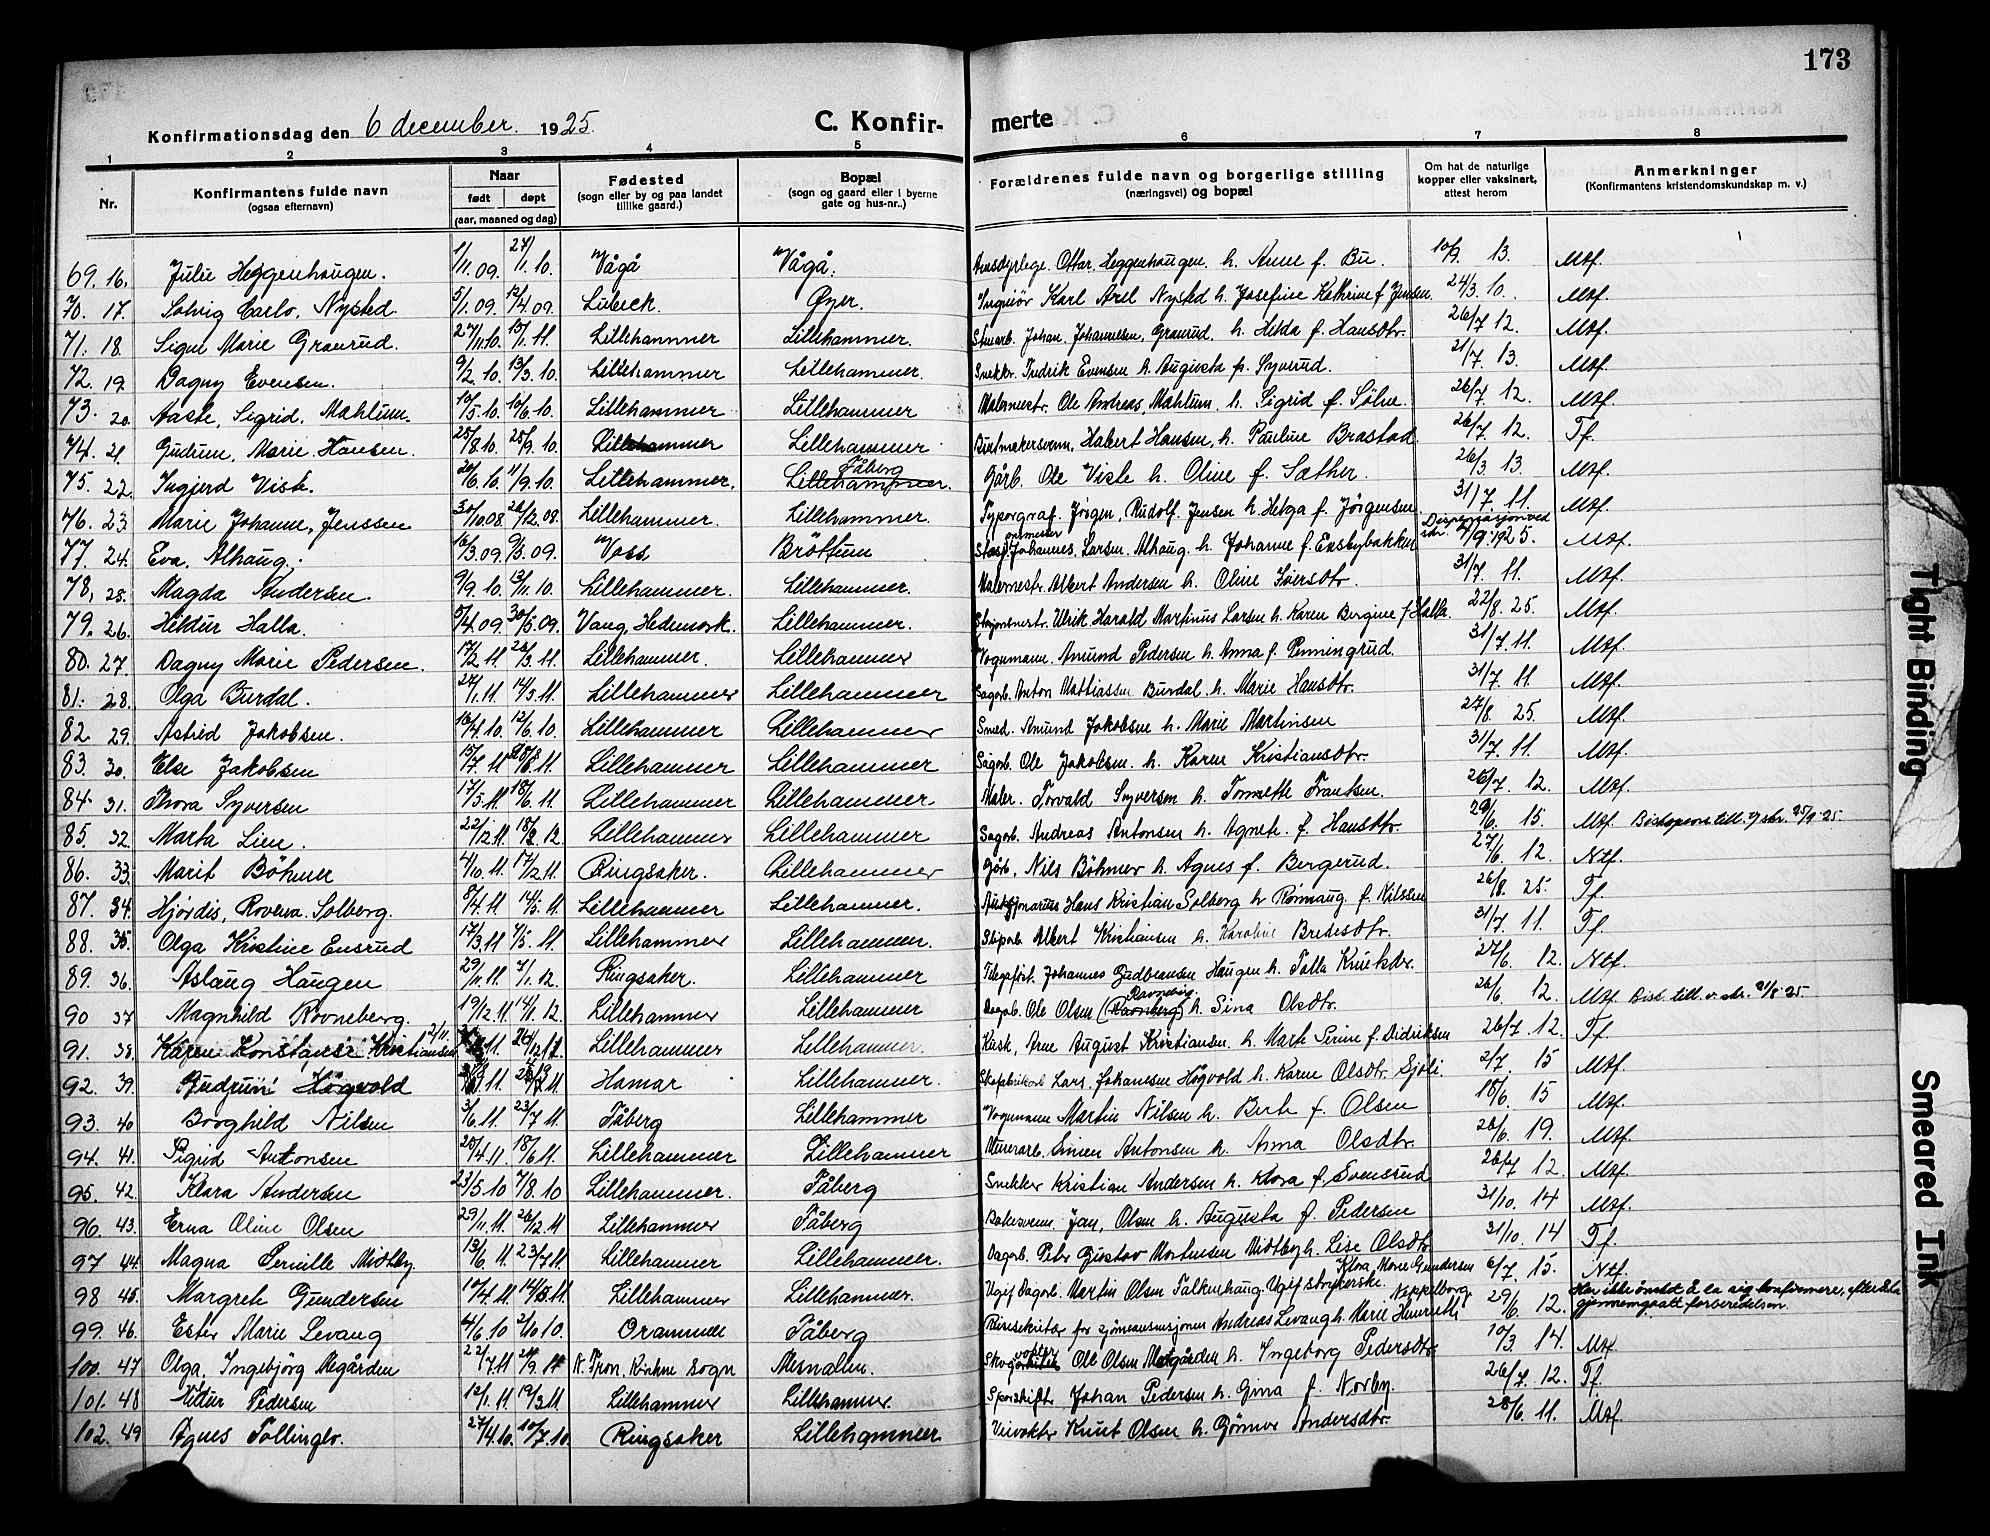 173
Konfirmationsdag den 6 december. 1925.
C. Konfir-
merte
1 2 3 4 5 6 7 8
Nr.
Konfirmantens fulde navn
(ogsaa efternavn)
Naar
født døpt
(aar, maaned og dag)
Fødested
(sogn eller by og paa landet
tillike gaard.)
Bopæl
(sogn og gaard eller i byerne
gate og hus-nr.)
Forældrenes fulde navn og borgerlige stilling
(næringsvei) og bopæl
Om hat de naturlige
kopper eller vaksinert,
attest herom
Anmerkninger
(Konfirmantens kristendomskundskap m. v.)
69. 16. Julie Heggenhaugen. 1/11. 09. 27/1. 10. Vågå Vågå. Ottar Heggenhaugen. h. Anne f. Bu. 10/9. 13. Mtf.
70. 17. Solvig Carlo. Nysted. 5/1. 09. 12/4. 09. Lübeck. Øyer. Ingeniör Karl Axel Nysted h. Josefine Kathrine f. Jensen. 24/3. 10. Mtf.
71. 18. Signe Marie Granrud. 27/11. 10. 15/1. 11. Lillehammer Lillehammer. Johan Johannesen Granrud. h. Hilda f. Hansdtr. 26/7 12. Mtf.
72. 19. Dagny Evensen. 9/2. 10. 13/3. 10. Lillehammer Lillehammer. Snekkr. Fredrik Evensen h. Augusta f. Syverud. 21/7. 13. Mtf.
73. 20. Aaste, Sigrid. Mæhlum. 10/5. 10. 19/6. 10. Lillehammer Lillehammer Malermestr. Ole Andreas Mæhlum h. Sigrid f. Sölve. 26/7. 12. Mtf.
74. 21. Gudrun, Marie Hansen. 25/8. 10. 25/9. 10. Lillehammer Lillehammer Halbert Hansen, h. Pauline Brastad 26/7. 12. Tf.
75. 22. Ingjerd Viste. 20/6. 10. 11/9. 10. Lillehammer. Fåberg Lillehammer. Gårb. Ole Viste h. Oline f. Sæther. 26/3 13. Mtf.
76. 23 Marie Johanne, Jenssen 30/10. 08. 26/12. 08. Lillehammer. Lillehammer. Typograf. Jörgen, Rudolf Jensen h. Helga f. Jörgensen 31/7. 11. Mtf.
77. 24. Eva. Alhaug. 16/3. 09. 9/5. 09. Voss Bröttum Johannes Larsen. Alhaug. h. Johanne f. Ensbybakken Dispensasjon ved skr. 7/9. 1925. Mtf.
78. 25. Magda Andersen. 9/9. 10. 13/11. 10. Lillehammer. Lillehammer. Malermestr. Albert Andersen h. Oline Iversdtr. 31/7. 11. Mtf.
79. 26. Hildur Halla. 5/4. 09. 30/5. 09. Vang, Hedemark. Lillehammer. Ulrik Harald Martinus Larsen h. Karen Bergine f. Halla 22/8. 25. Mtf.
80. 27 Dagny Marie Pedersen. 17/2. 11. 26/3. 11. Lillehammer. Lillehammer Vognmann Amund Pedersen h. Anna f. Penningrud. 31/7. 11. Mtf.
81. 28. Olga Burdal. 27/1. 11. 14/5. 11. Lillehammer Lillehammer Sagarb. Anton Mattiassen Burdal h. Marie Hansdtr. 31/7. 11. Mtf.
82. 29. Astrid Jakobsen. 16/4. 10. 12/6. 10. Lillehammer Lillehammer Smed. Amund Jakobsen h. Marie Martinsen 27/8. 25. Mtf.
83. 30. Else Jakobsen 15/7. 11. Lillehammer Lillehammer Sagarb. Ole Jakobsen. h. Karen Kristiansdtr. 31/7. 11. Mtf.
84. 31. Thora Syversen 17/5. 11. 18/6. 11 Lillehammer Lillehammer Maler. Torvald Syversen h. Tomette Frantsen. 26/7. 12. Mtf.
85. 32. Marta Lien. 22/12. 11. 18/2. 12. Lillehammer Lillehammer Sagarb. Andreas Antonsen h. Agnete f. Hansdtr. 29/6. 15. Mtf. Biskopens till. v. skr. 25/9. 25.
86. 33. Marit Böhmer 4/10. 11. 17/2. 11. Ringsaker. Lillehammer Nils Böhmer h. Agnes f. Bergerud. 27/6. 12. Ntf.
87. 34. Hjørdis, Rovena. Solberg. 8/4. 11 14/5. 11. Lillehammer Lillehammer. Hans Kristian Solberg h. Rønnaug. f. Nilssen 26/8. 25. Tf.
88. 35. Olga Kristine Ensrud 17/3. 11 7/5. 11. Lillehammer Lillehammer. Albert Kristiansen h. Karoline Bredesdtr. 31/7. 11. Tf.
89. 36. Aslaug Haugen 29/11. 11. 7/1. 12. Ringsaker. Lillehammer Johannes Gudbransen Haugen h. Talla Knutsdtr. 27/6. 12. Ntf.
90 37 Magnhild Rovneberg. 19/12. 11. 14/1. 12. Lillehammer Lillehammer Dagarb. Ole Olsen h. Sina Olsdtr. 26/6. 12. Mtf. Bisk. till. v. skr. 21/8. 25.
91. 38. Karen Konstanse Kristiansen 2/11. 11. Lillehammer Lillehammer. Kusk, Arne August Kristiansen. h. Marte Serine f. Didriksen 26/7. 12. Tf.
92. 39. Gudrun Høgvold Hamar Lillehammer. Lars Johannesen Høgvold h. Karen Olsdtr. Sjøli 2/7. 15 Mtf.
93. 40 Borghild Nilsen 3/6. 11. 23/7. 11. Fåberg Lillehammer Vognmann Martin Nilsen h. Berte f. Olsen 18/6. 15 Mtf.
94. 41. Sigrid Antonsen 25/4. 11. 18/6. 11. Lillehammer Lillehammer Antonsen h. Anna Olsdtr. 26/6. 19. Mtf.
95. 42. Klara Andersen 23/5. 10 7/8. 10 Lillehammer. Fåberg Snekker Kristian Andersen h. Klara f. Svensrud 26/7 12. Mtf.
96. 43. Erna Oline Olsen 29/11. 11. 26/12. 11 Lillehammer Fåberg Bakersvenn. Jan, Olsen h. Augusta f. Pedersen 31/10. 14 Mtf.
97 44. Magna Pernille Midtby. 13/6. 11. 23/7. 11. Lillehammer Lillehammer. Dagarb. Peter Gustav Mortensen Midtby h. Lise Olsdtr. 31/10. 14 Tf.
98 45. Margrete Gundersen 10/4. 11. 14/5. 11. Lillehammer Lillehammer. Ugift Dagarb. Martin Olsen Falkenhaug. Ugift strykerske. Klara Marie Gundersen 6/7. 15. Ntf.
99. 46. Ester Marie Levang 4/6. 10 2/10. 10. Drammen Fåberg Reisesekretær for sjømannsmisjonen Andreas Levang h. Marie Henriette Nappelborg 29/6. 12. Har ikke ønsket å la sig konfirmere, efter å ha gjennemgaatt forberedelsen.
100. 47 Olga, Ingebjörg Megården 22/7. 11 24/9. 11 N. Fron, Kirkne sogn Mesnalien. Ole Olsen Megården h. Ingeborg Pedersdtr. 10/3. 14. Mtf.
101. 48 Hildur Pedersen 12/1. 11. 12/3. 11. Lillehammer Lillehammer. Johan Pedersen h. Gina f. Norby. 26/7. 12. Tf.
102. 49 Agnes Tollingbr. 27/4. 10. 10/7. 10. Ringsaker Lillehammer Veivokter Knut Olsen h. Gönner Andersdtr. 28/6. 11. Mtf.
Tight Binding
Smeared Ink